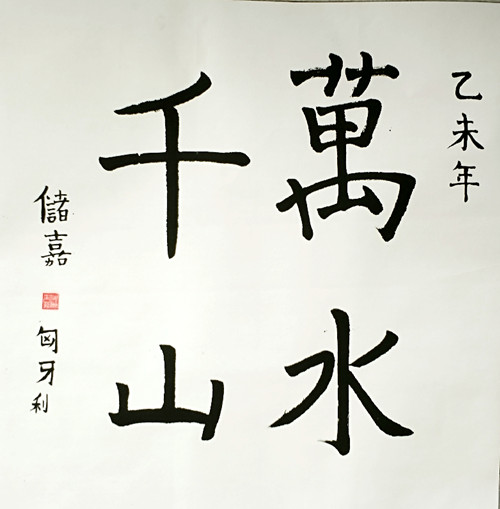 乙未年
萬水
千山
儲嘉
匈牙利